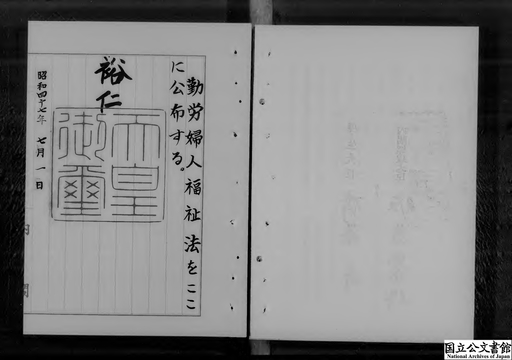 勤労婦人福祉法をここ
に公布する。
裕仁
天皇
御璽
昭和四十七年 七月一日
内閣
国立公文書館
National Archives of Japan